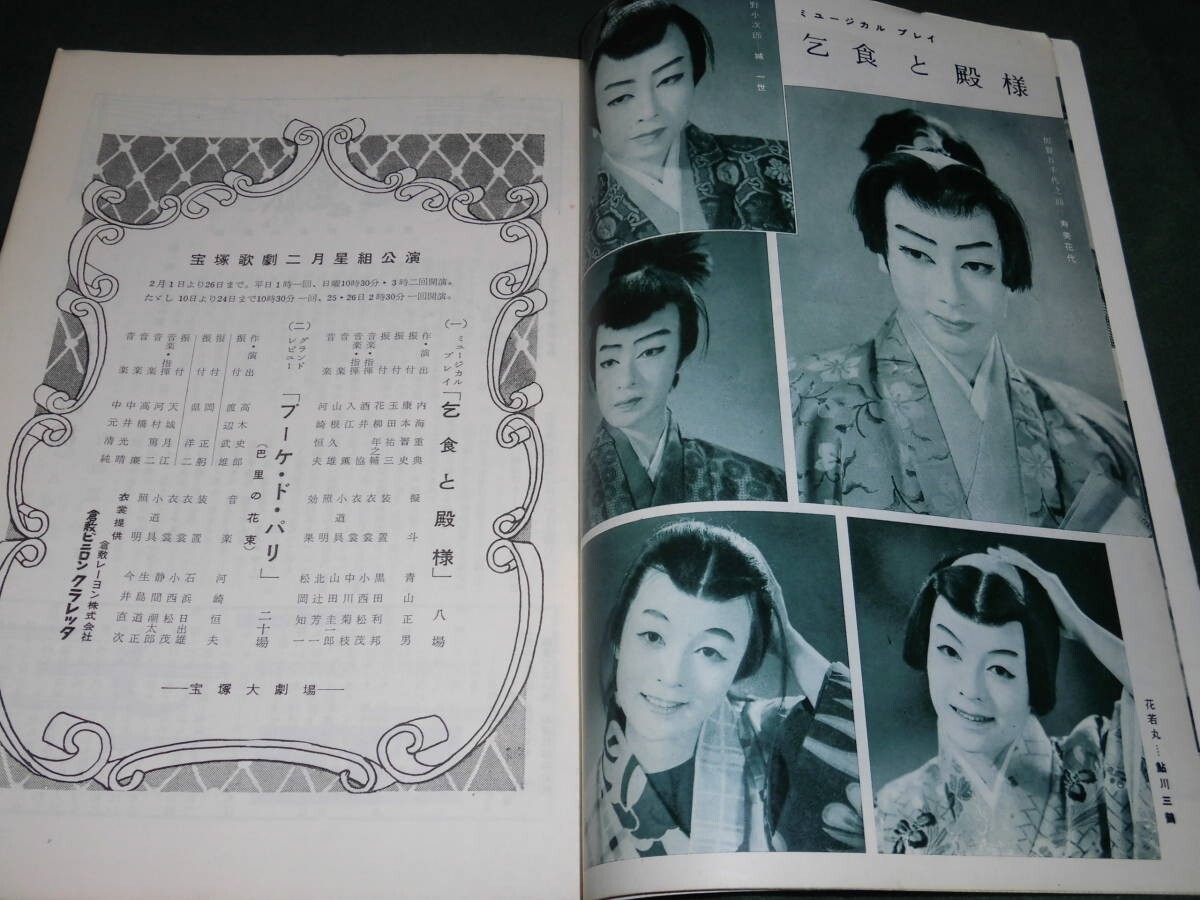 宝塚歌劇二月星組公演
2月1日より26日まで。平日1時一回、日曜10時30分・3時二回開演。
たゞし 10日より24日まで10時30分一回、25・26日2時30分一回開演。
(一)ミュージカルプレイ「乞食と殿様」八場
作・演出 内海重典
振付 康本晋史
振付 玉田祐三
音楽・指揮 花柳年之輔
音楽・指揮 酒井協
音楽 入江薫
音楽 山根久雄
音楽 河崎恒夫
擬斗 青山正男
装置 黒田利邦
衣裳 小西松茂
衣裳 中川菊枝
小道具 山田圭二郎
照明 北辻芳一
効果 松岡知一
(二)グランドレビュー「ブーケ・ド・パリ」(巴里の花束) 二十場
作・演出 高木史郎
振付 渡辺武雄
振付 岡正躬
振付 県洋二
音楽・指揮 天城月江
音楽 河村篤二
音楽 高橋廉
音楽 中井光晴
中元清純
音楽 河崎恒夫
装置 石浜日出雄
衣裳 小西松茂
衣裳 静間潮太郎
小道具 生島道正
照明 今井直次
衣裳提供 倉敷レーヨン株式会社
倉敷ビニロン クラレッタ
―宝塚大劇場―
ミュージカル プレイ
乞食と殿様
野小次郎 城一世
寿美花代
花若丸……鮎川三鶴